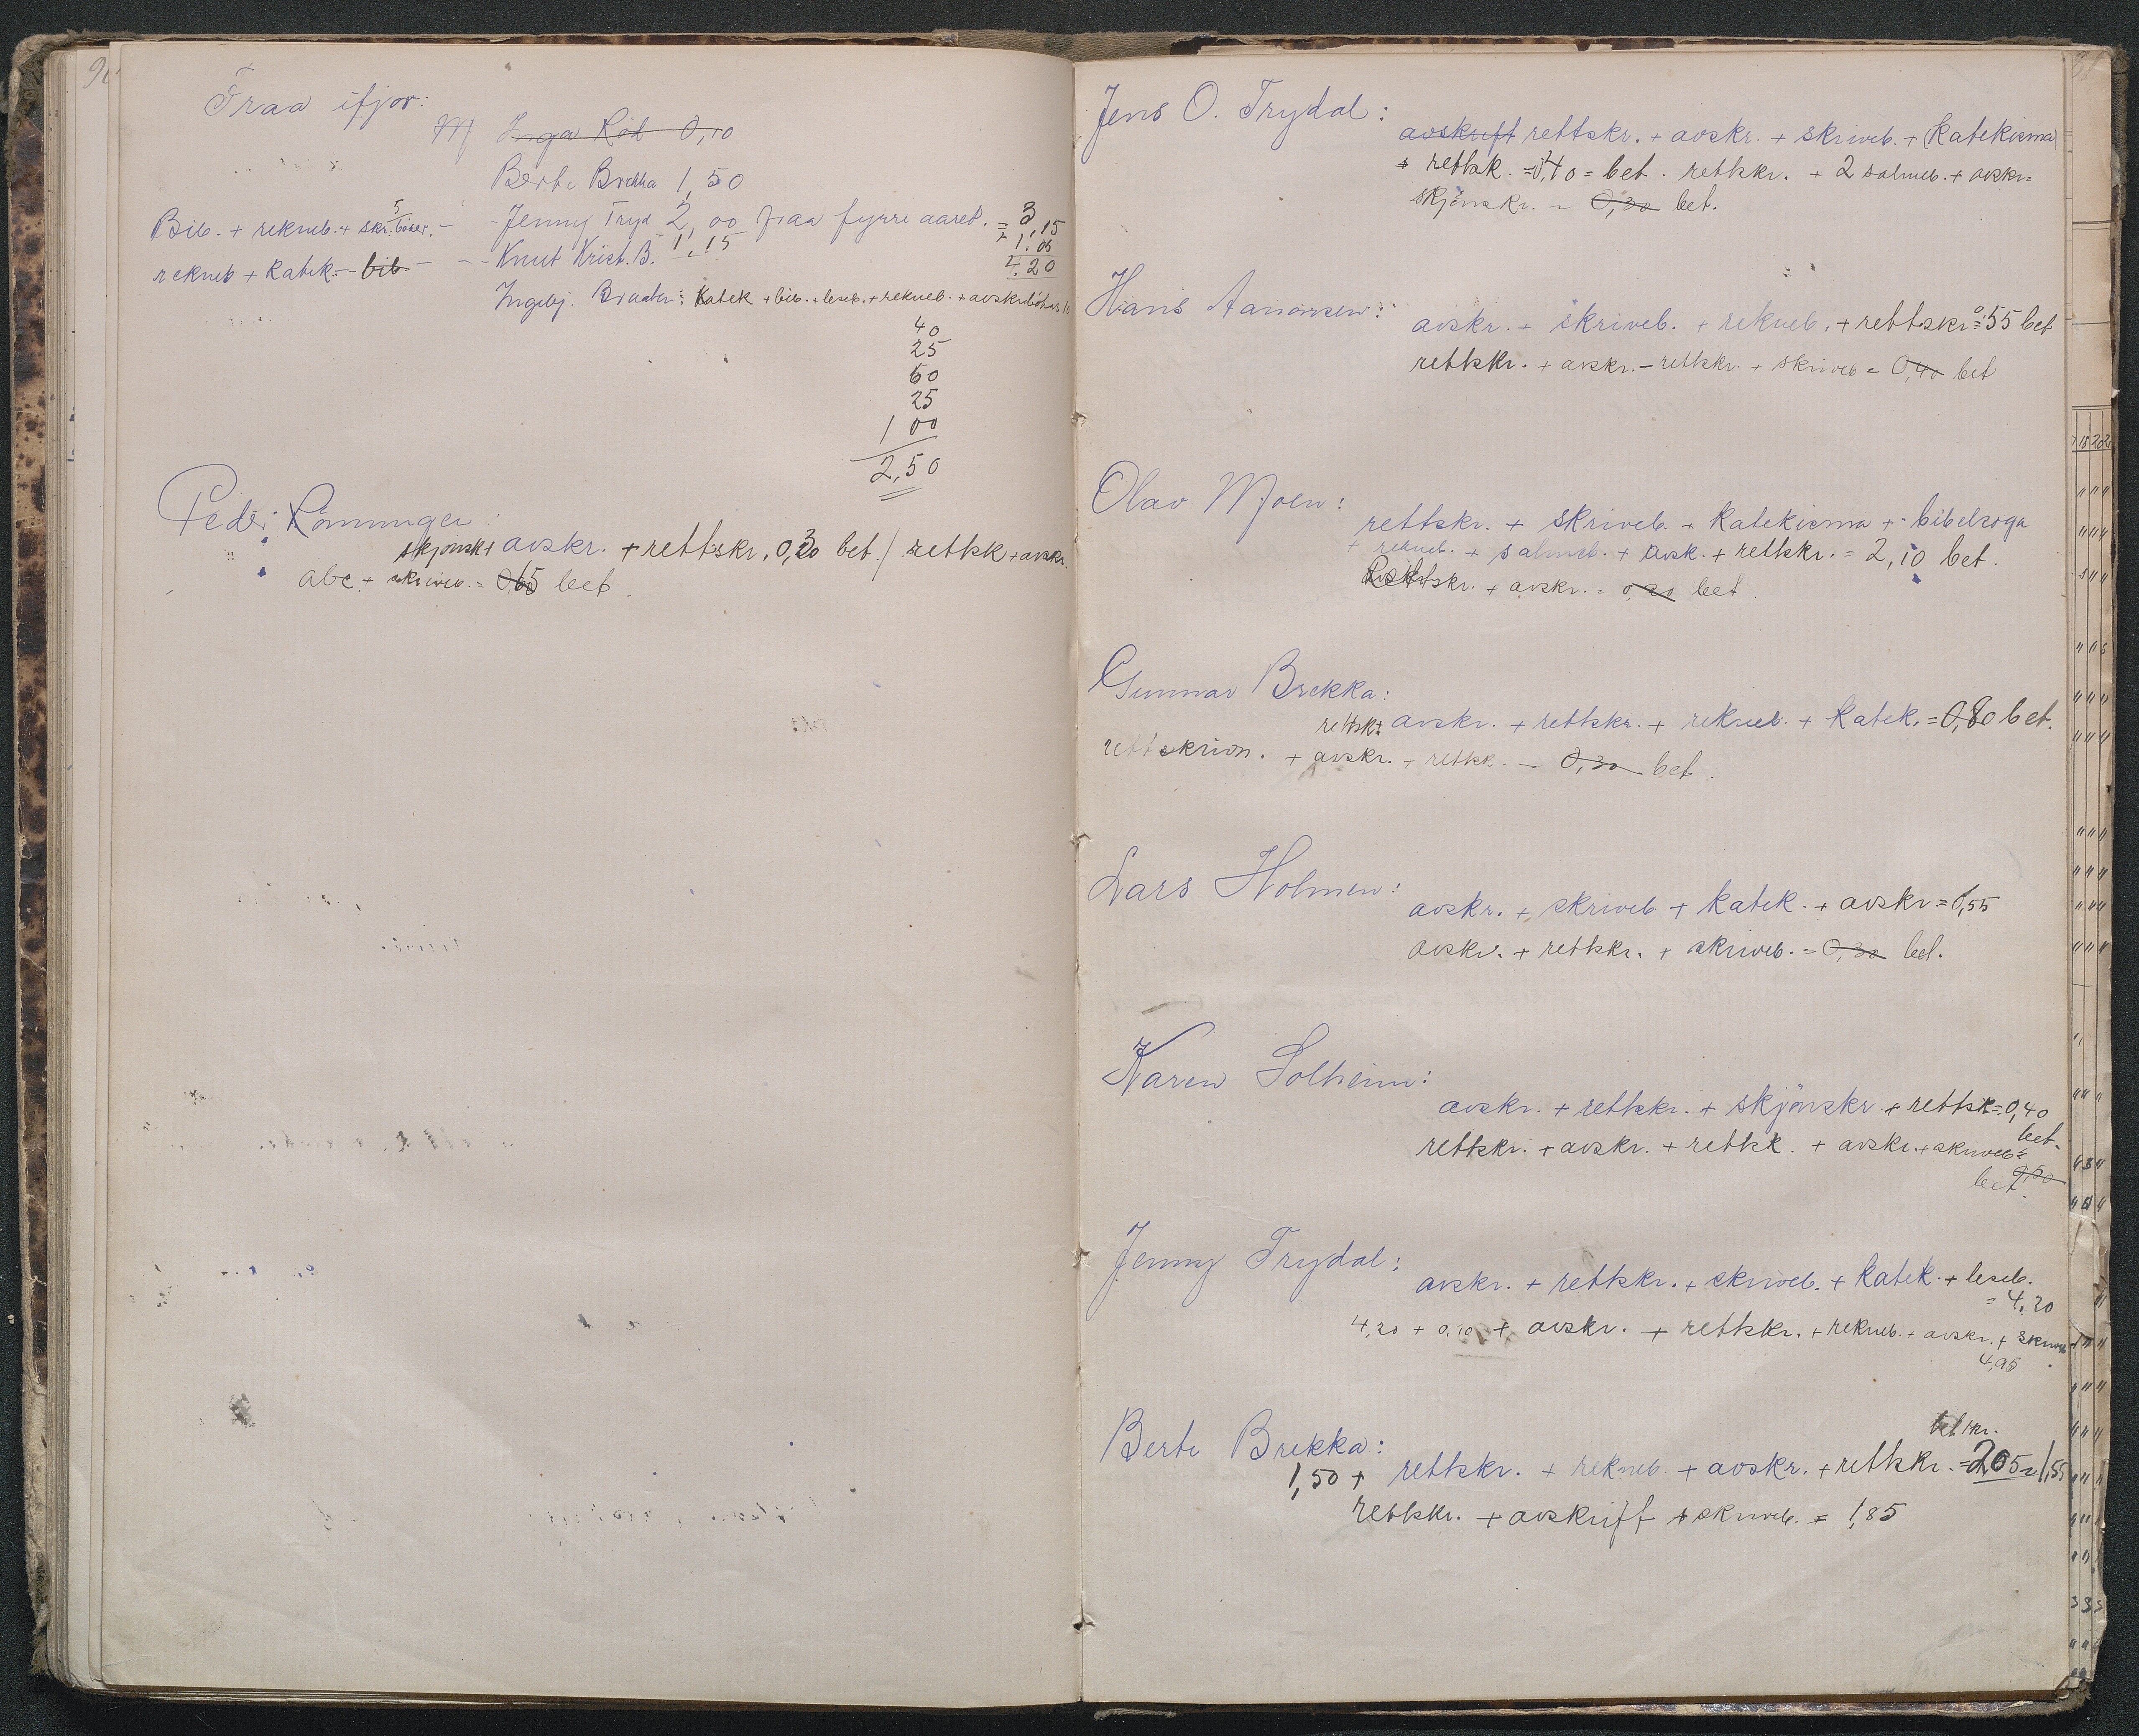 Fraa ifjor:
Inga Röd 0,10
Berte Brekka 1,50
Bib. + rekneb. + skr. böker. - Jenny Tryd 2,00 fraa fyrre aaret. = 3,15
5
+ 1.05
rekneb + Katek. - bib. - - Knut Krist. B. 1,15
4.20
Ingebj. Braaten: Katek + bib. + leseb. + rekneb. +
40
25
60
25
1 00
2,50
Peder Rönningen:
skjönsk + avskr. + rettskr. 0,30 bet. / rettsk + avskr.
abc. + skriveb. = 0,65 bet.
Jens O. Trydal:
avskrift rettskr. + avskr. + skriveb. + (Katekisma)
+ rettsk. = 0,40 = bet. rettskr. + 2 salmeb. + avskr =
skjönskr. = 0,30 bet.
Hans Aanonsen:
avskr. + skriveb. + rekneb. + rettskr = 0,55 bet
rettskr. + avskr. - rettskr + skriveb = 0,40 bet
Olav Moen:
rettskr. + skriveb. + Katekisma + bibelsoga
+ rekneb. + salmeb. + avsk. + rettskr. = 2,10 bet.
Rettskr. + avskr. = 0,20 bet.
Gunnar Brekka:
rettsk + avskr. + rettskr. + rekneb. + Katek. = 0,80 bet.
rettskrivn. + avskr. + rettsk. - 0,30 bet.
Lars Holmen:
avskr. + skriveb + Katek. + avskr = 0,55
avskr. + rettskr. + skriveb. = 0,30 bet.
Karen Solheim:
avskr. + rettskr. + skjönskr + rettsk = 0,40
bet.
rettskr. + avskr. + rettsk. + avskr. + skriveb =
0,50
bet.
Jenny Trydal:
avskr. + rettskr. + skriveb. + Katek. + leseb.
= 4,20
4,20 + 0,10 + avskr. + rettskr. + rekneb. + avskr. + skriveb
4,95
Berte Brekka:
bet 1 kr.
1,50 + rettskr. + rekneb. + avskr. + rettskr. = 2,05 = 1,55
rettskr. + avskrift + skriveb. = 1,85